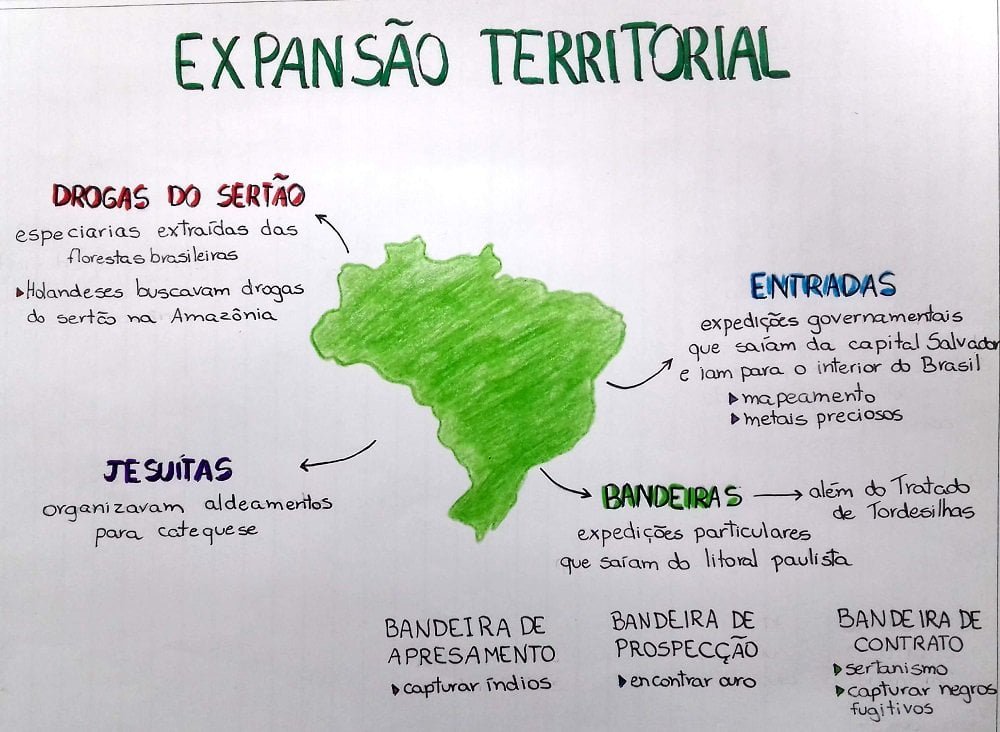 EXPANSÃO TERRITORIAL
DROGAS DO SERTÃO
especiarias extraídas das
florestas brasileiras
▸Holandeses buscavam drogas
do sertão na Amazônia
ENTRADAS
expedições governamentais
que saíam da capital Salvador
e iam para o interior do Brasil
▸mapeamento
▸metais preciosos
JESUÍTAS
organizavam aldeamentos
para catequese
BANDEIRAS → além do Tratado
de Tordesilhas
expedições particulares
que saíam do litoral paulista
BANDEIRA DE
APRESAMENTO
▸capturar índios
BANDEIRA DE
PROSPECÇÃO
▸encontrar ouro
BANDEIRA DE
CONTRATO
▸sertanismo
▸capturar negros
fugitivos